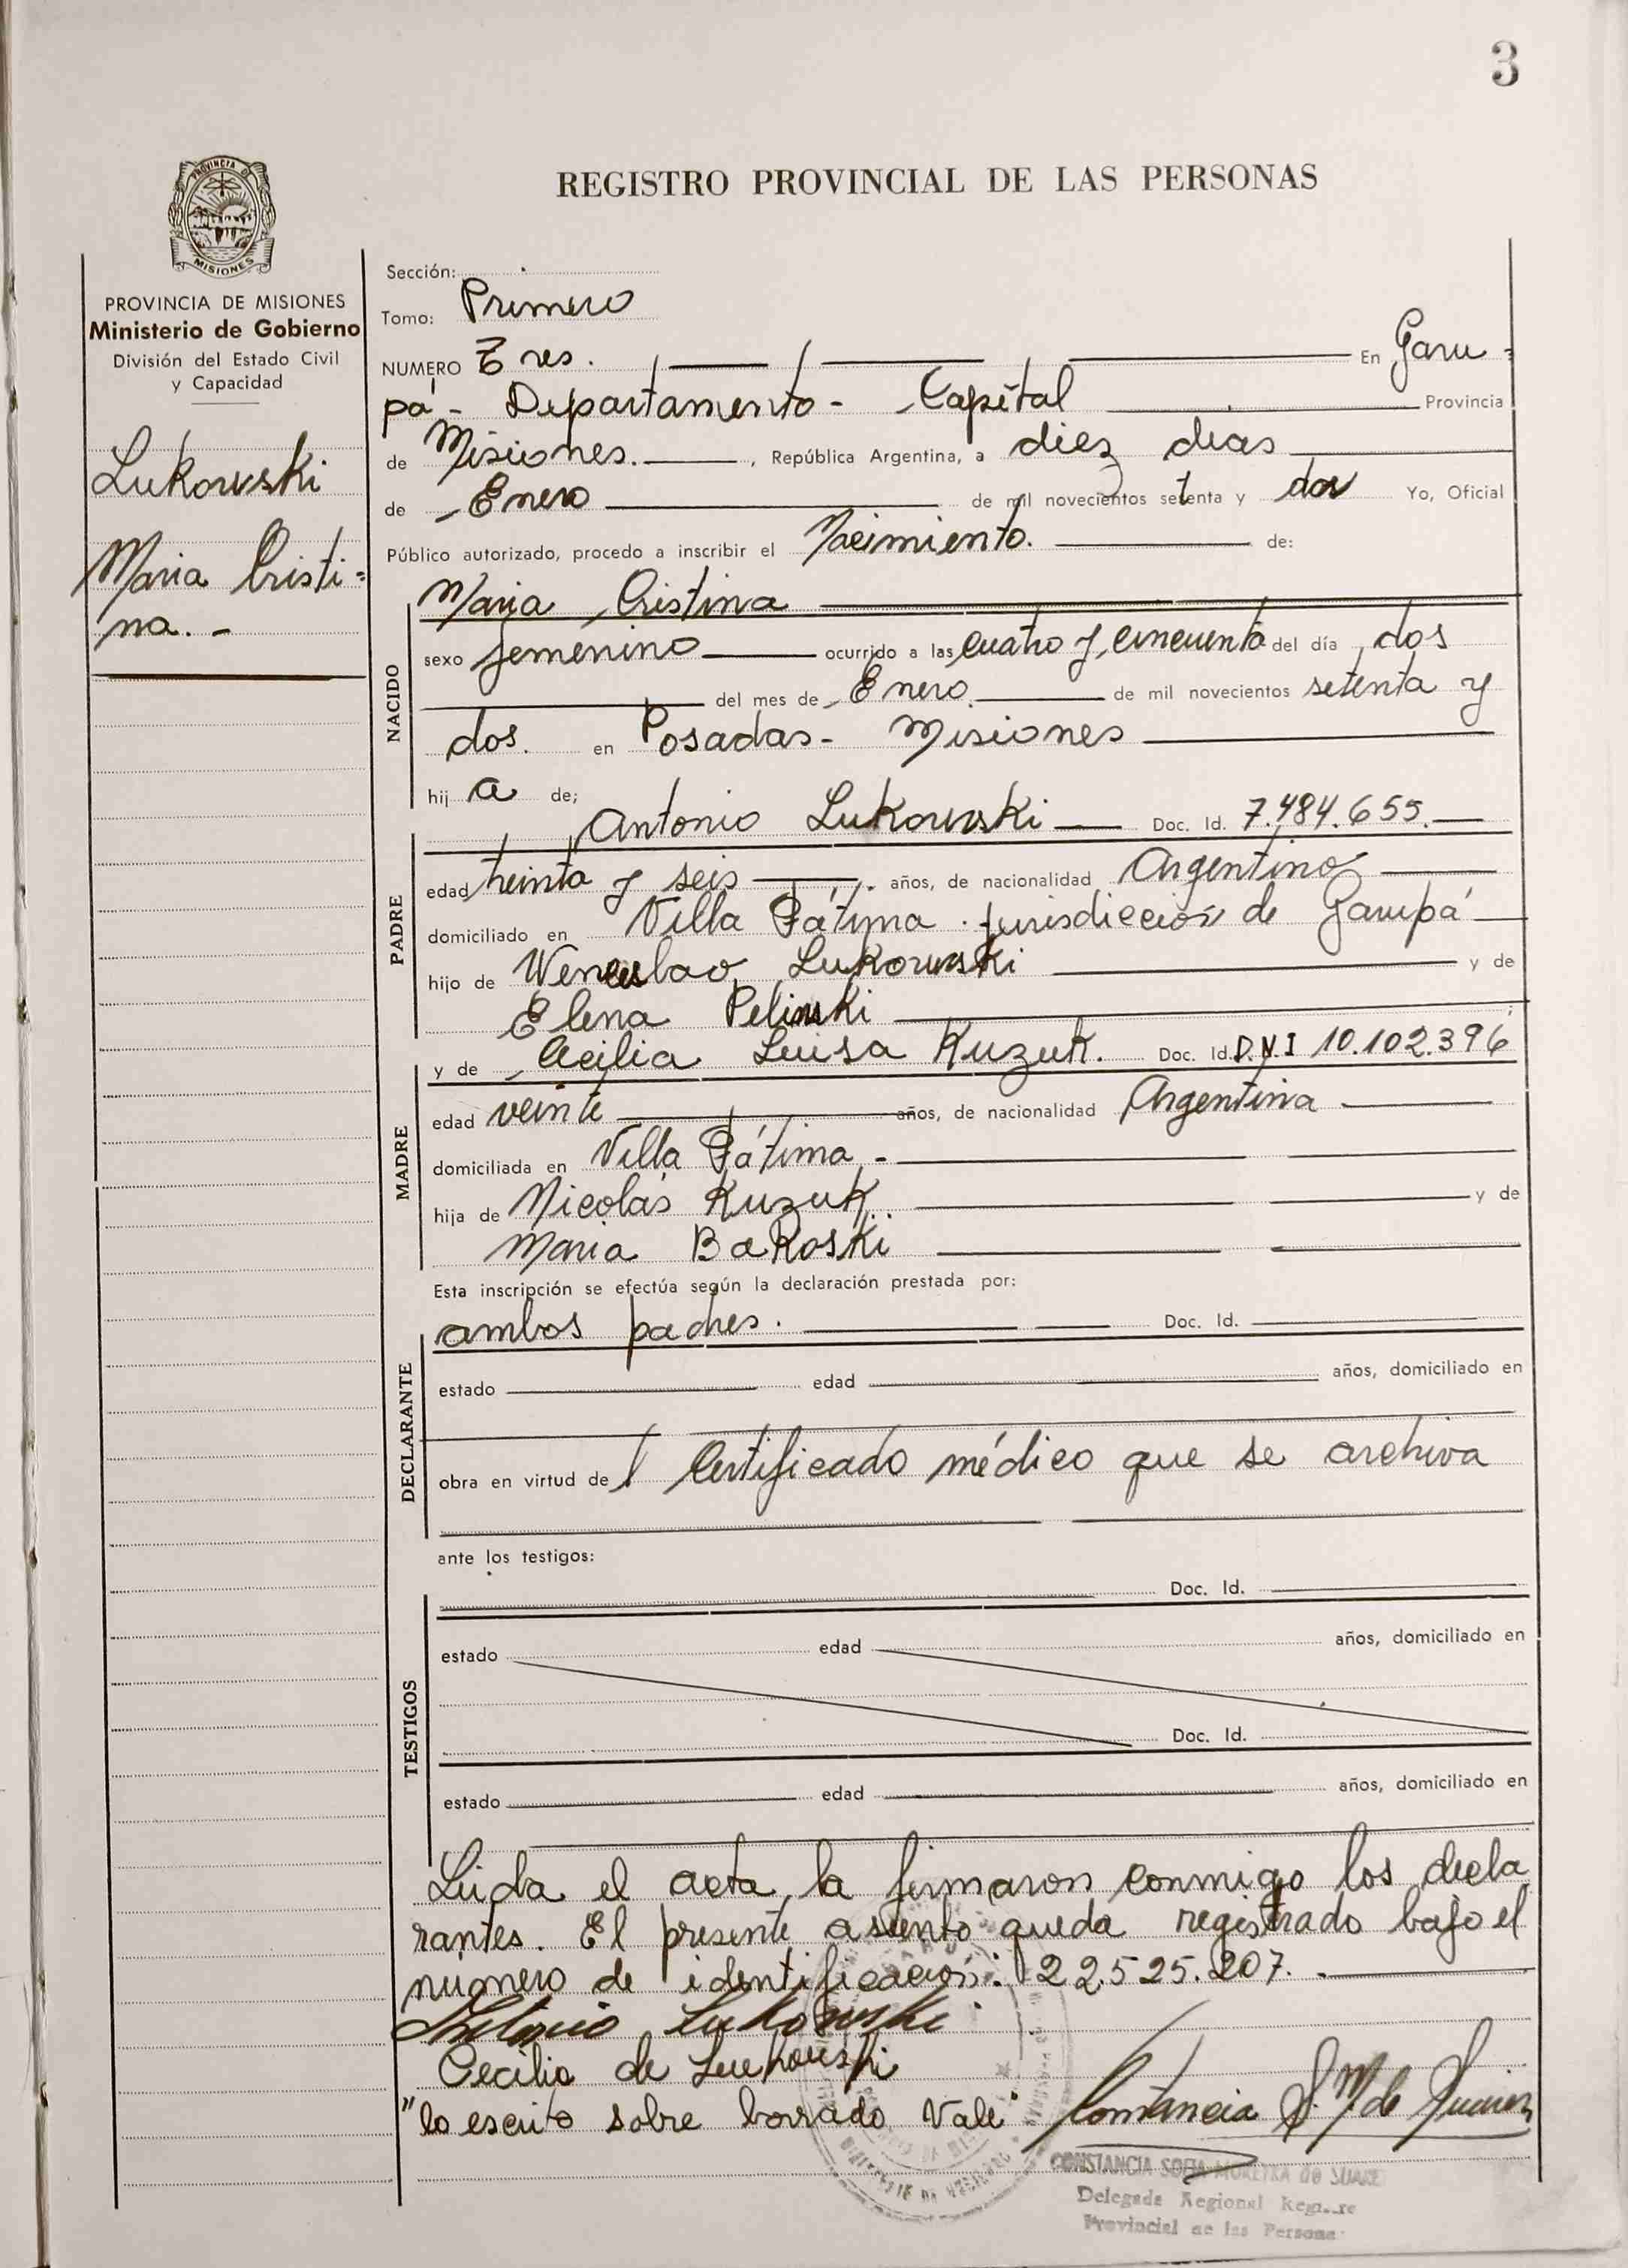 3
REGISTRO PROVINCIAL DE LAS PERSONAS
PROVINCIA DE
MISIONES
PROVINCIA DE MISIONES
Ministerio de Gobierno
División del Estado Civil
y Capacidad
Lukowski
Maria Cristi=
na. -
Sección:
Tomo: Primero
NUMERO Tres. En Garu-
pá - Departamento - Capital Provincia
de Misiones. , República Argentina, a diez dias
de Enero de mil novecientos setenta y dos Yo, Oficial
Público autorizado, procedo a inscribir el Nacimiento. de:
NACIDO
Maria Cristina
sexo femenino ocurrido a las cuatro y, cincuenta del día dos
del mes de Enero de mil novecientos setenta y
dos. en Posadas - Misiones
hij a de;
PADRE
Antonio Lukowski Doc. Id. 7.484.655.
edad treinta y seis años, de nacionalidad Argentino
domiciliado en Villa Fátima. jurisdicción de Garupá
hijo de Wenceslao Lukowski y de
Elena Pelinski
MADRE
y de Cecilia Luisa Kuzuk. Doc. Id. D.N.I 10.102.396
edad veinte años, de nacionalidad Argentina
domiciliada en Villa Fátima. -
hija de Nicolás Kuzuk. y de
Maria Bakoski
Esta inscripción se efectúa según la declaración prestada por:
DECLARANTE
ambos padres. Doc. Id.
estado edad años, domiciliado en
obra en virtud de Certificado médico que se archiva
ante los testigos:
TESTIGOS
Doc. Id.
estado edad años, domiciliado en
Doc. Id.
estado edad años, domiciliado en
Leida el acta, la firmaron conmigo los decla
rantes. El presente asiento queda registrado bajo el
número de identificación: 22.525.207.
Antonio Lukowski
Cecilia de Lukowski
"lo escrito sobre borrado Vale" Constancia S. M. de Suarez
CONSTANCIA SOFIA MOREYRA de SUAREZ
Delegada Regional
Provincial de las Personas